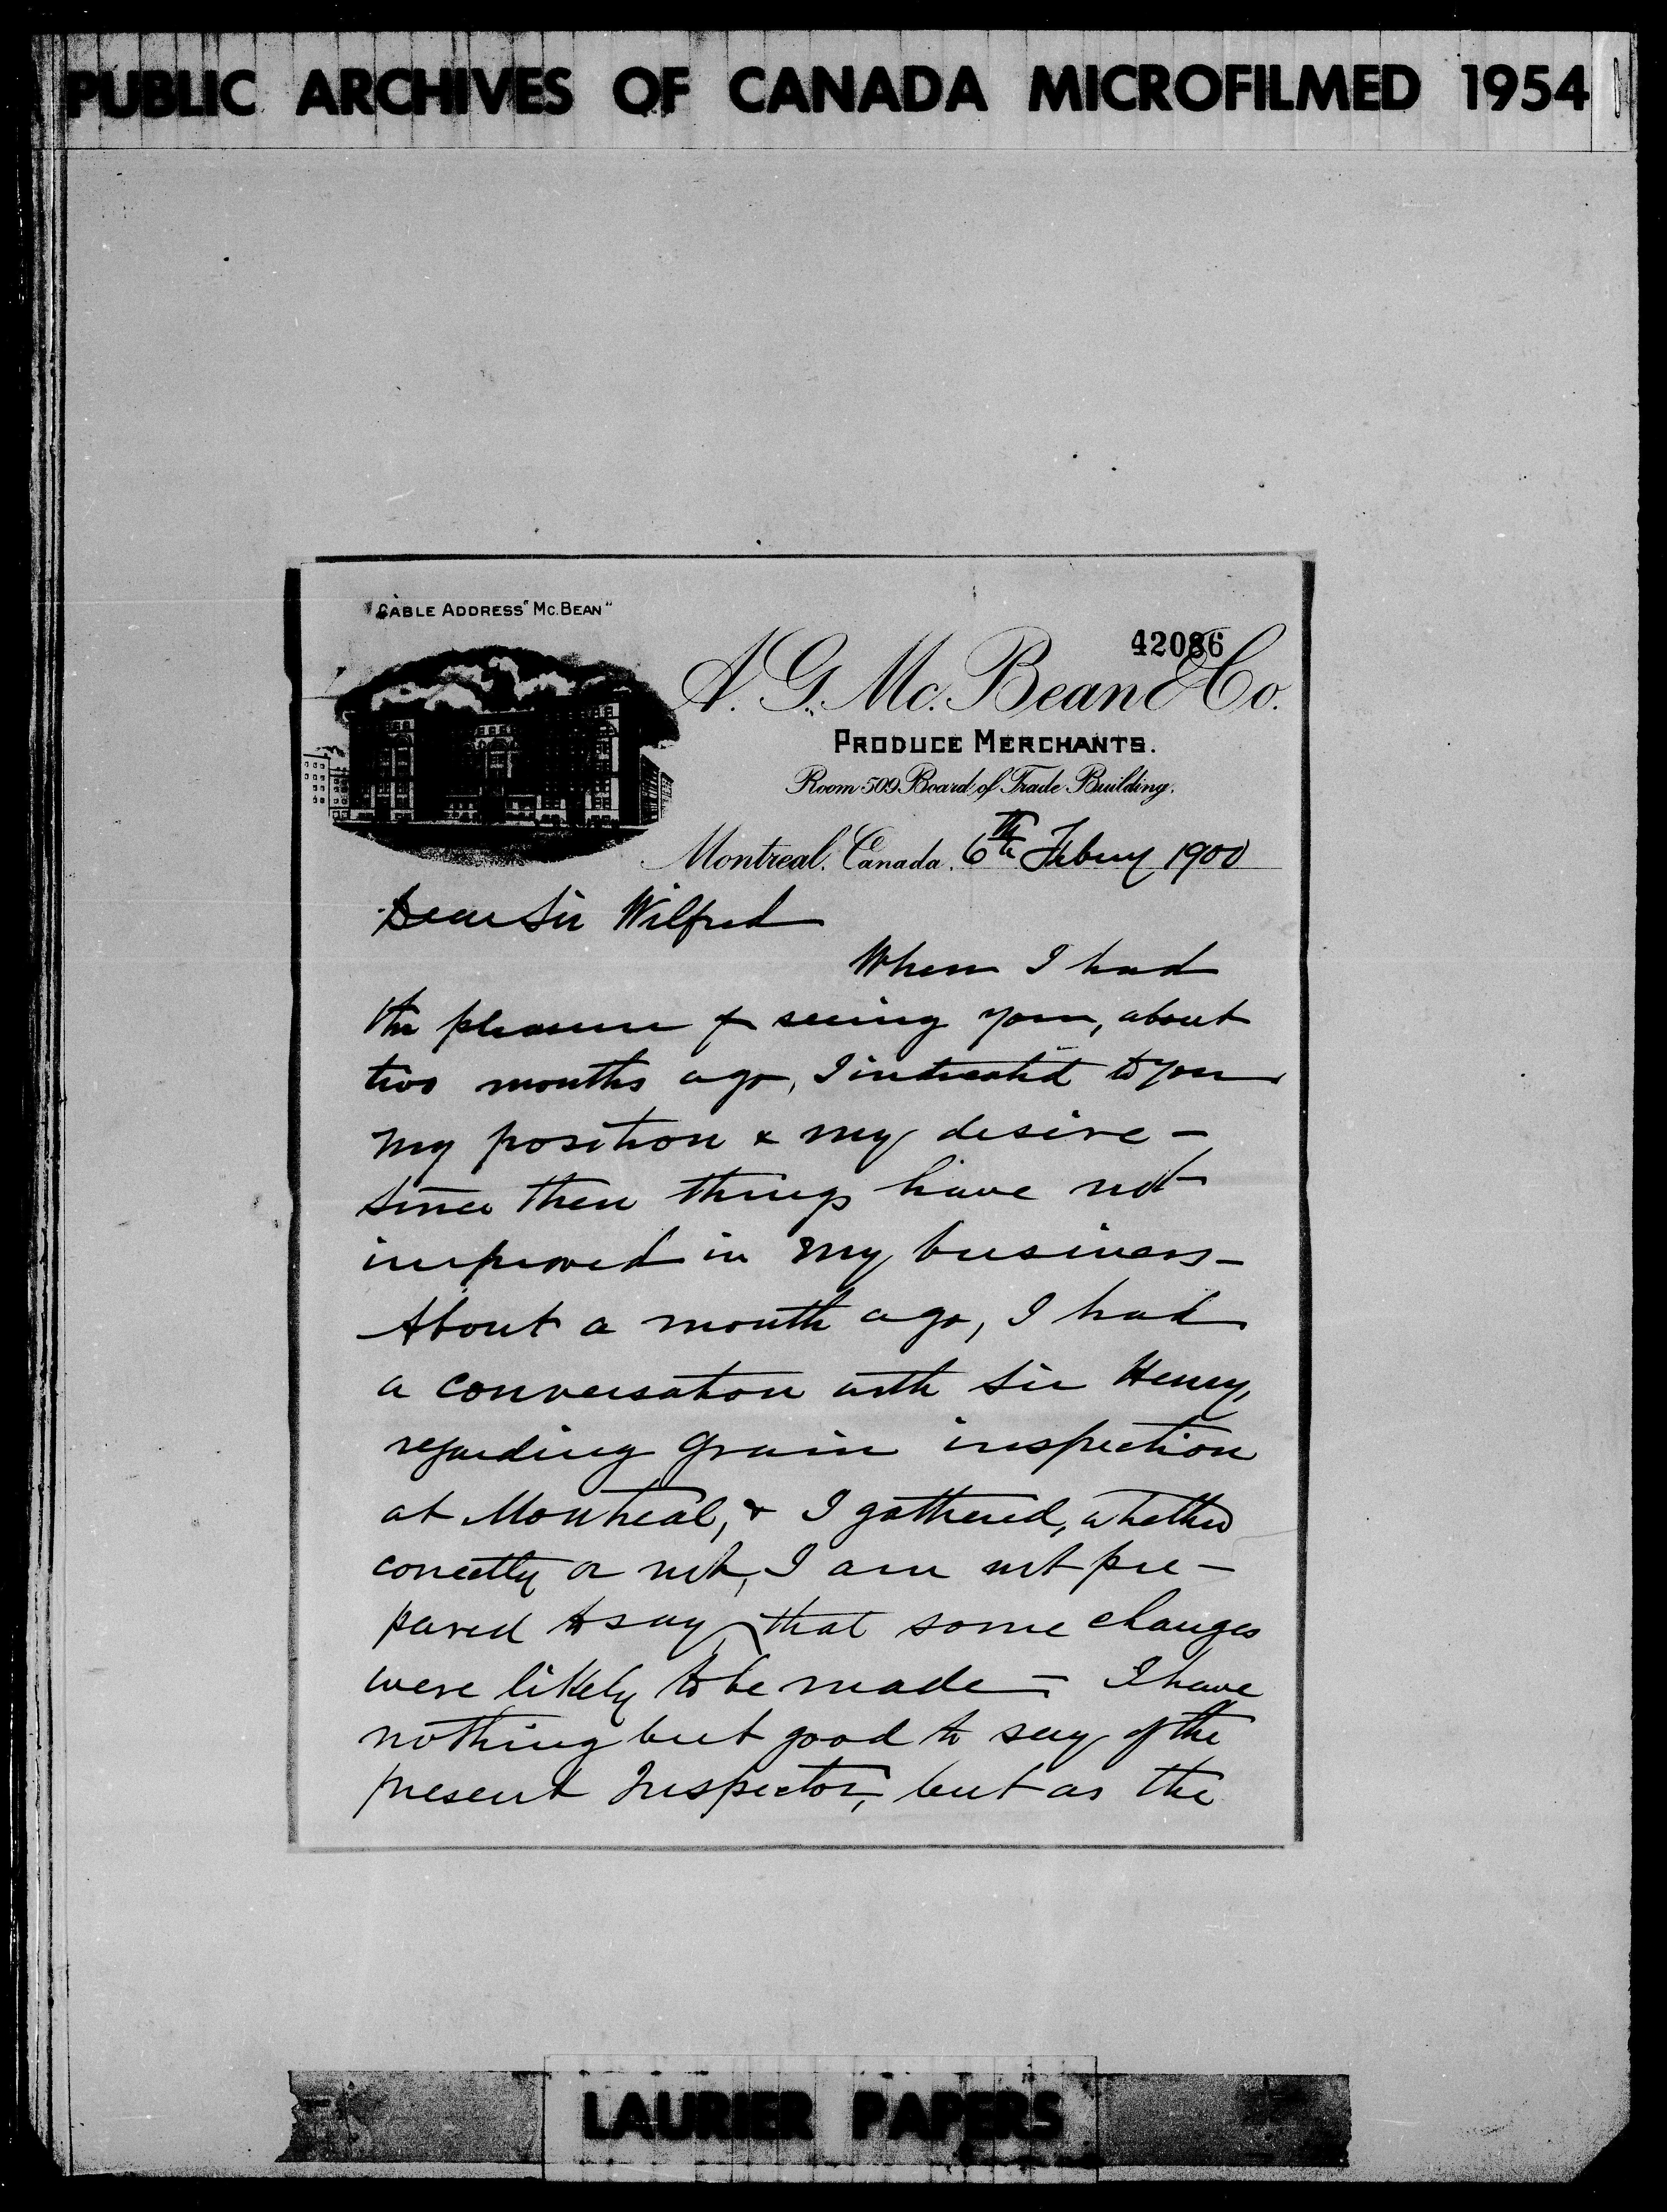 PUBLIC ARCHIVES OF CANADA MICROFILMED 1954
"CABLE ADDRESS "MC.BEAN"
42086
A. G. Mc. Bean & Co.
PRODUCE MERCHANTS.
Room 509 Board of Trade Building.
Montreal, Canada, 6th Febury 1900
Dear Sir Wilfred
When I had
the pleasure of seeing you, about
two months ago, I indicated to you
my position & my desire -
since then things have not
improved in my business -
About a month ago, I had
a conversation with Sir Henry,
regarding grain inspection
at Montreal, & I gathered, whether
correctly or not, I am not pre-
pared to say, that some changes
were likely to be made - I have
nothing but good to say of the
present Inspector, but as the
LAURIER PAPERS